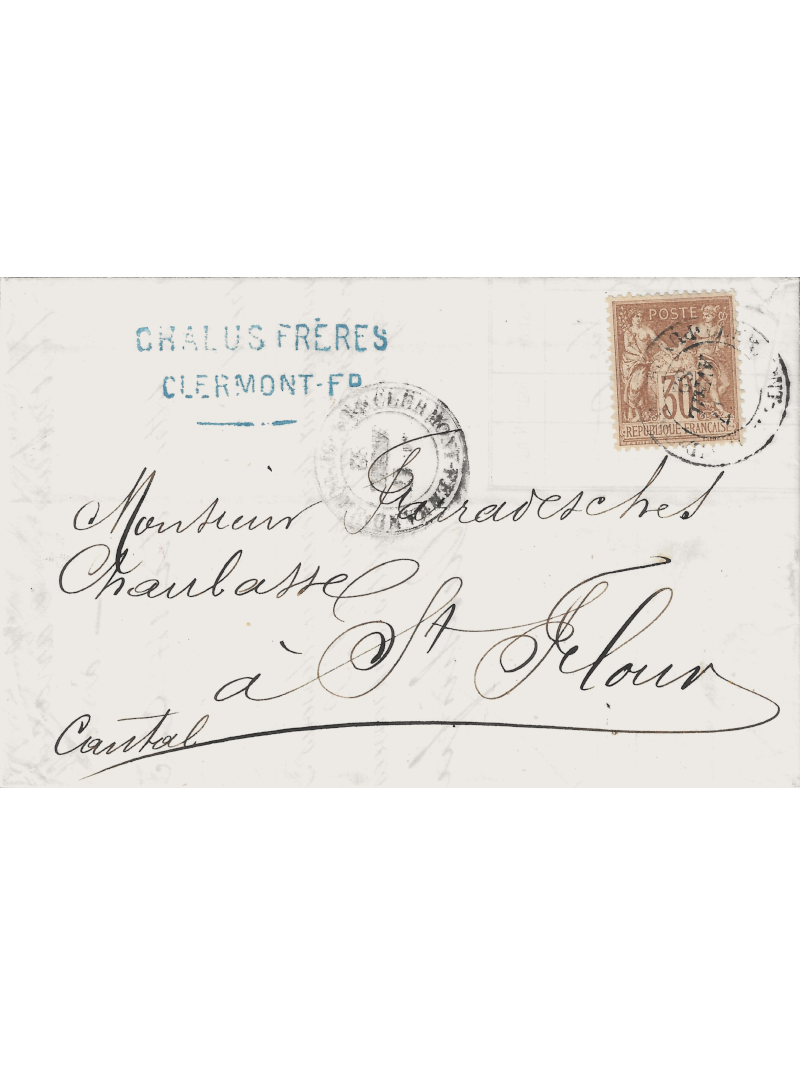 CHALUS FRÈRES
CLERMONT-FD
POSTE
30
REPUBLIQUE FRANÇAISE
CLERMONT-FERRAND
Monsieur
Chaulasse
à St Flour
Cantal